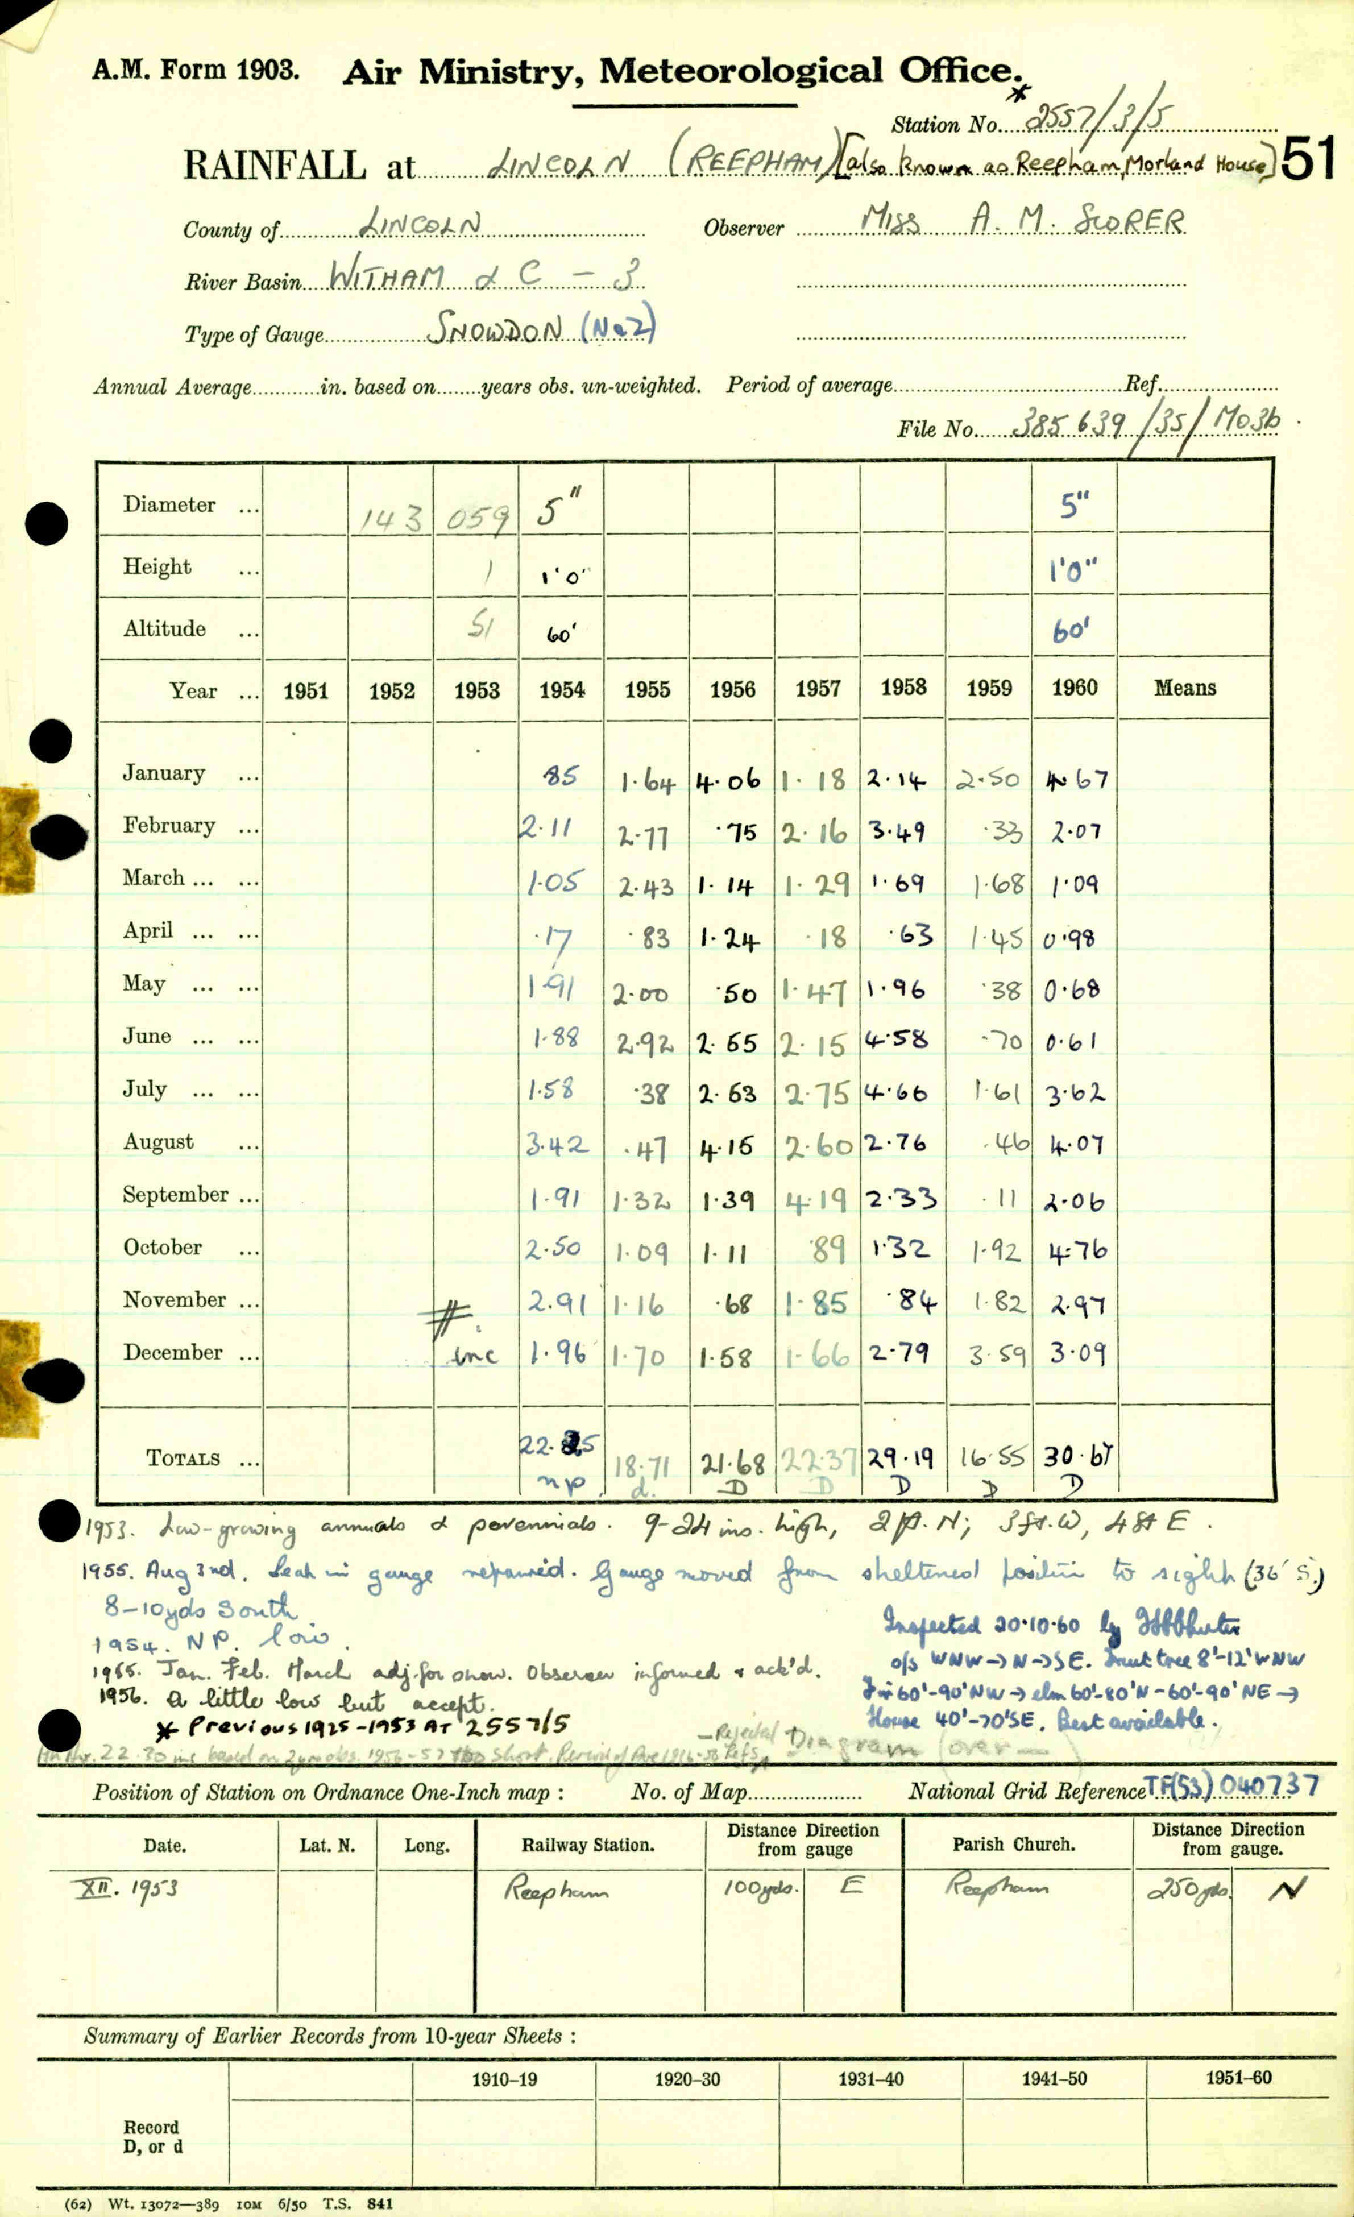 A.M. Form 1903. Air Ministry, Meteorological Office.
* Station No. 2557/3/5
RAINFALL at LINCOLN (REEPHAM) [also known as Reepham, Morland House] 51
County of LINCOLN Observer MISS A. M. SCORER
River Basin WITHAM & C - 3
Type of Gauge SNOWDON (No 2)
Annual Average in. based on years obs. un-weighted. Period of average Ref.
File No. 385639/35/Mo3b.
Diameter ... 143 059 5" 5"
Height ... 1 1'0" 1'0"
Altitude ... 51 60' 60'
Year ... 1951 1952 1953 1954 1955 1956 1957 1958 1959 1960 Means
January ... ·85 1·64 4·06 1·18 2·14 2·50 4·67
February ... 2·11 2·77 ·75 2·16 3·49 ·33 2·07
March ... ... 1·05 2·43 1·14 1·29 1·69 1·68 1·09
April ... ... ·17 ·83 1·24 ·18 ·63 1·45 0·98
May ... ... 1·91 2·00 ·50 1·47 1·96 ·38 0·68
June ... ... 1·88 2·92 2·65 2·15 4·58 ·70 0·61
July ... ... 1·58 ·38 2·63 2·75 4·66 1·61 3·62
August ... 3·42 ·47 4·15 2·60 2·76 ·46 4·07
September ... 1·91 1·32 1·39 4·19 2·33 ·11 2·06
October ... 2·50 1·09 1·11 ·89 1·32 1·92 4·76
November ... 2.91 1·16 ·68 1·85 ·84 1·82 2·97
December ... inc 1·96 1·70 1·58 1·66 2·79 3·59 3·09
TOTALS ... 22·25 18·71 21·68 22·37 29·19 16·55 30·67
np. d. D D D D D
1953. Low-growing annuals & perennials. 9-24 ins. high, 2 ft. N; 3 ft. W, 4 ft E.
1955. Aug 3rd. Leak in gauge repaired. Gauge moved from sheltened position to right (36' S.)
8-10 yds South.
1954. NP. low.
1955. Jan. Feb. March adj. for snow. Observer informed & ack'd.
1956. A little low but accept.
* Previous 1925-1953 AT 2557/5
Inspected 20·10·60 by
o/s WNW→N→SE. Fruit tree 8'-12' WNW
Fir 60'-90' NW → elm 60'-80' N - 60'-90' NE →
House 40'-70' SE. Best available.
22·30 ins based on 2 yrs obs. 1956-57 too short. Period of Ave 1916-50 - Rejected Diagram (over —)
Position of Station on Ordnance One-Inch map : No. of Map National Grid Reference TF(53) 040737
Date. Lat. N. Long. Railway Station. Distance from Direction gauge Parish Church. Distance from Direction gauge.
XII. 1953 Reepham 100 yds. E Reepham 250 yds. N
Summary of Earlier Records from 10-year Sheets :
1910–19 1920–30 1931–40 1941–50 1951–60
Record
D, or d
(62) Wt. 13072—389 10M 6/50 T.S. 841